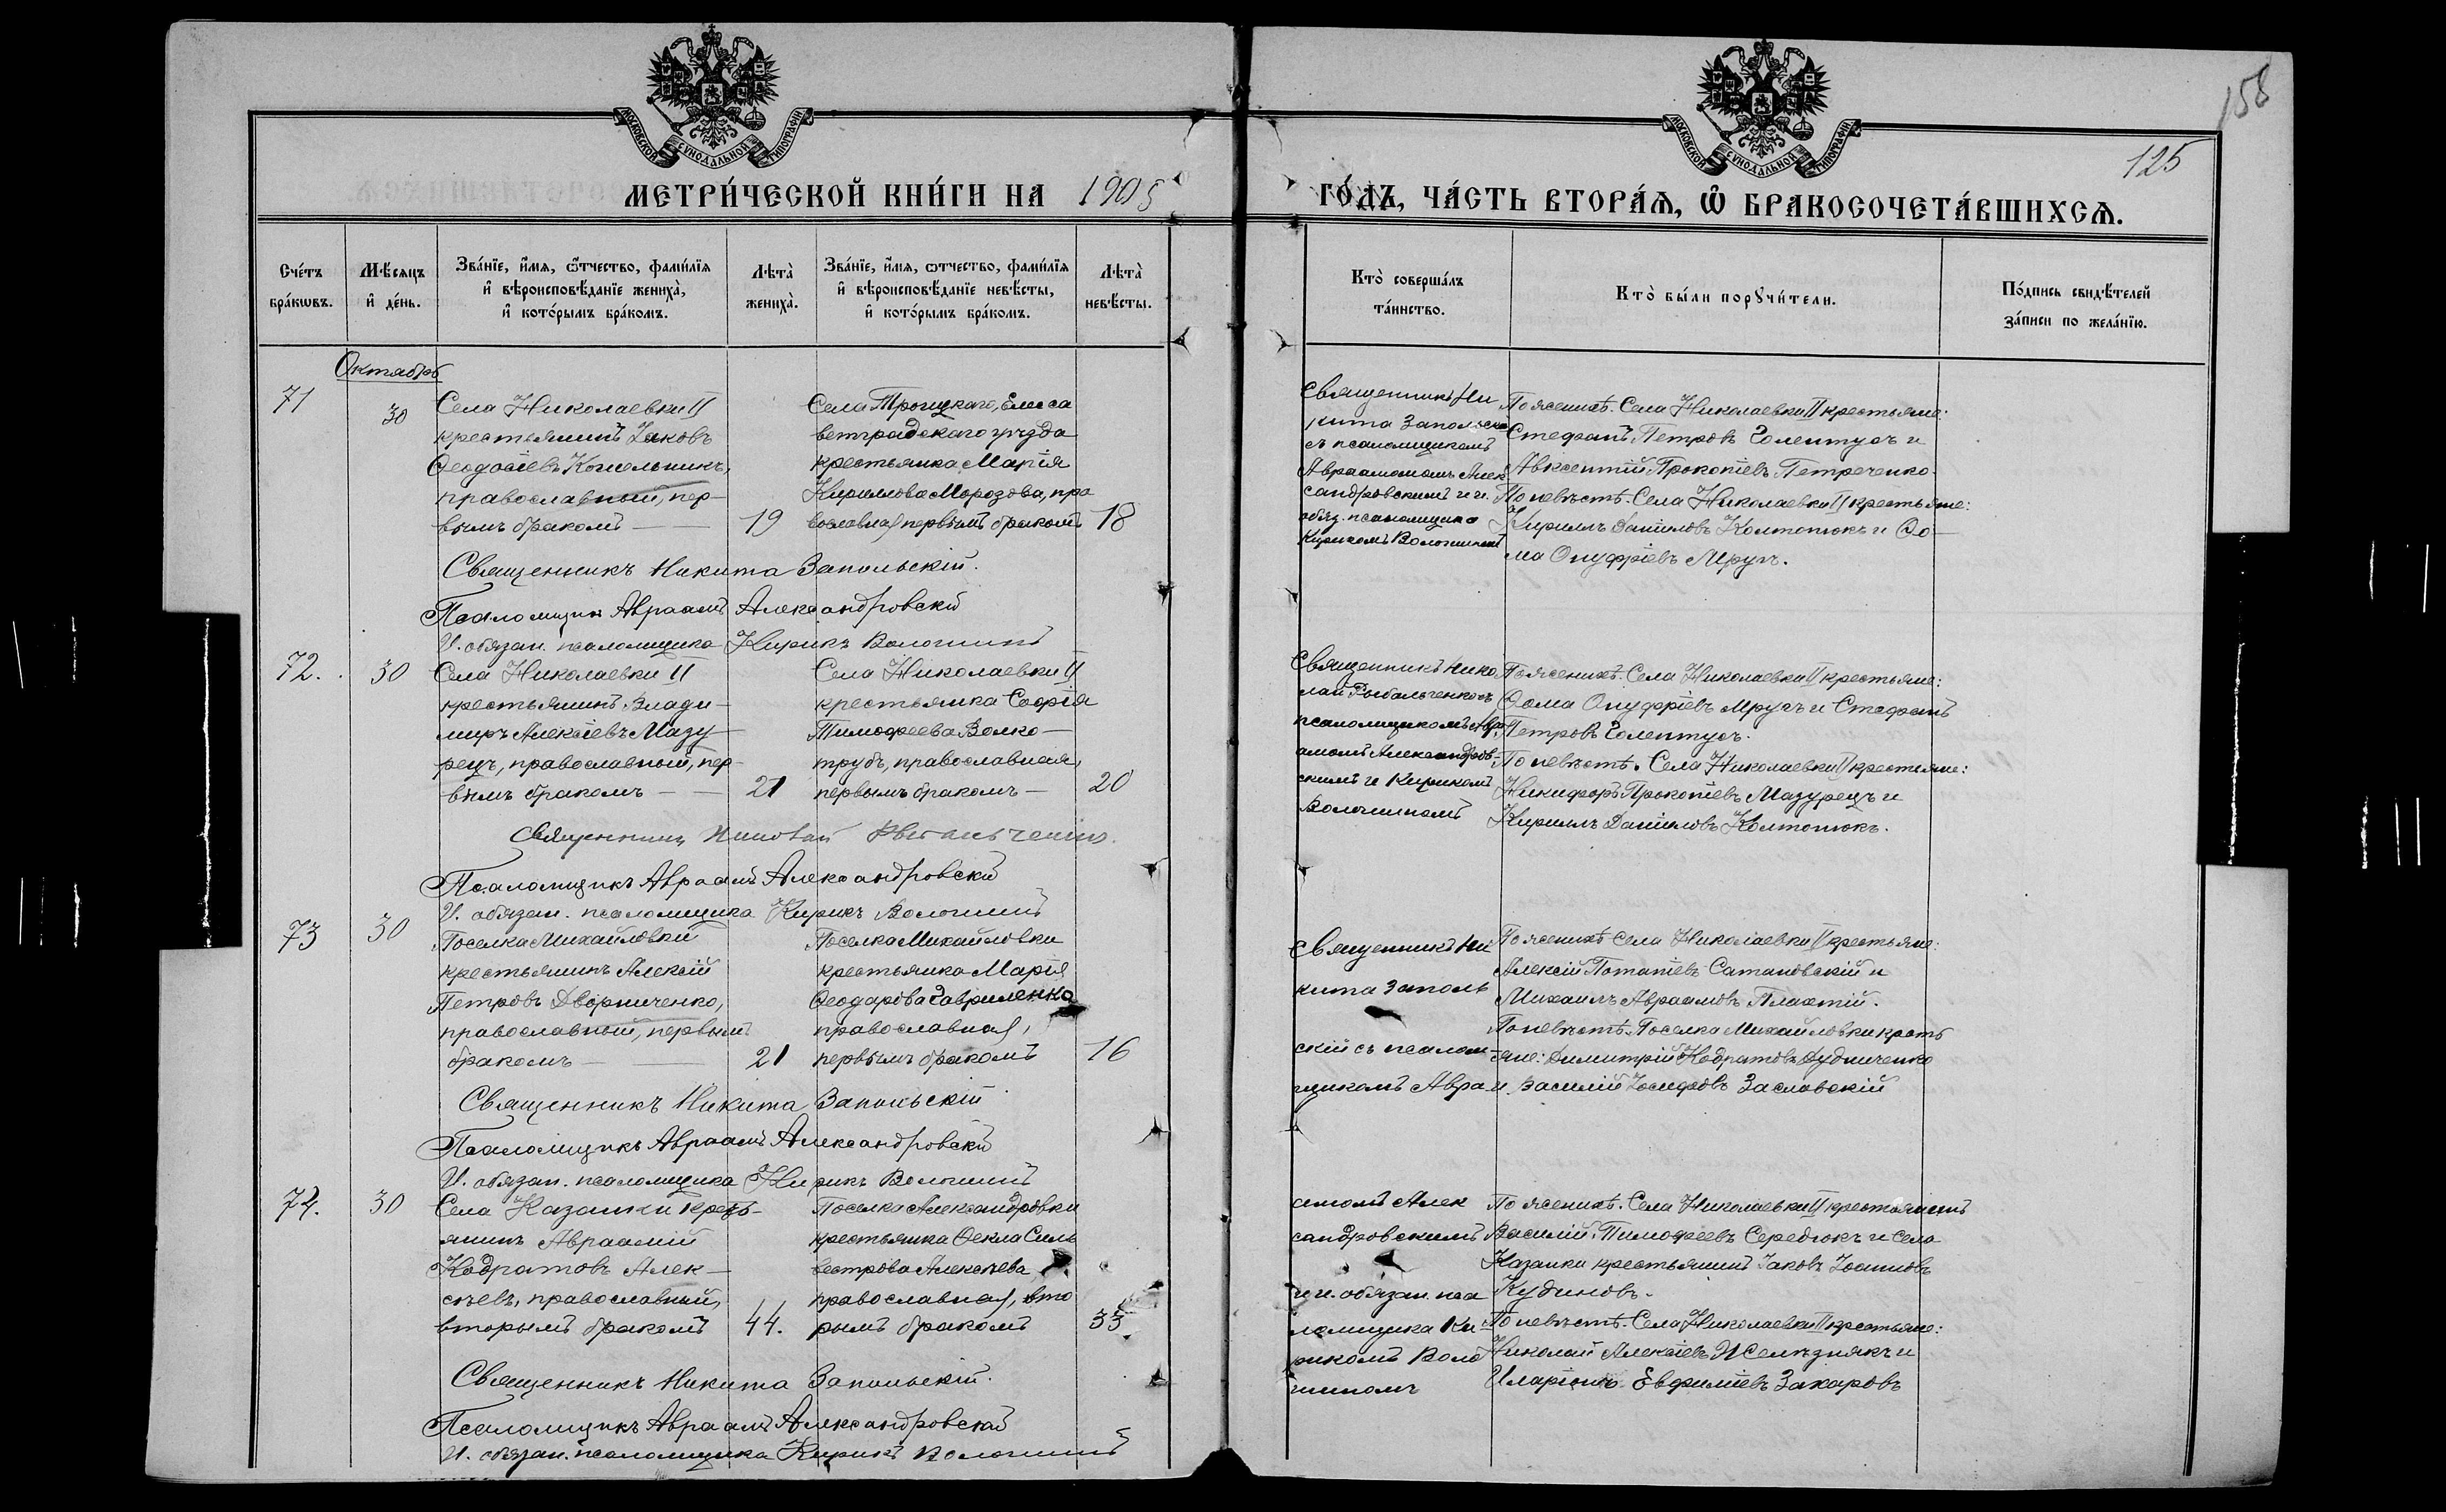 158
125
МОСКОВСКОЙ СУНОДАЛЬНОЙ ТИПОГРАФІИ
МОСКОВСКОЙ СУНОДАЛЬНОЙ ТИПОГРАФІИ
МЕТРИ́ЧЕСКОЙ КНИ́ГИ НА 1905
ГО́ДЪ, ЧА́СТЬ ВТОРА́Ѧ, Ѽ БРАКОСОЧЕТА́ВШИХСѦ.
Сче́тъ бра́кѡвъ.
Мѣ́сяцъ и҆ де́нь.
Зва́нїе, и҆́мѧ, ѻ҆́тчество, фами́лїѧ и҆ вѣроисповѣ́данїе жениха̀, и҆ кото́рымъ бра́комъ.
Лѣта̀ жениха̀.
Зва́нїе, и҆́мѧ, ѻ҆́тчество, фами́лїѧ и҆ вѣроисповѣ́данїе невѣ́сты, и҆ кото́рымъ бра́комъ.
Лѣта̀ невѣ́сты.
Кто̀ соверша́лъ та́инство.
Кто̀ бы́ли порꙋчи́тели.
По́дпись свидѣ́телей за́писи по жела́нїю.
Октябрь
71
30
Села Николаевки II
крестьянинъ Іаковъ
Ѳеодосіевъ Кошельникъ,
православный, пер-
вымъ бракомъ
19
Села Троицкаго, Елиса
ветградскаго уѣзда
крестьянка Марія
Кириллова Морозова, пра
вославная, первымъ бракомъ
18
Священникъ Ни
кита Запольскій
съ псаломщикомъ
Авраамомъ Алек
сандровскимъ и и.
обяз. псаломщика
Кирикомъ Волошинымъ
По женихѣ. Села Николаевки II крестьяне:
Стефанъ Петровъ Голентусъ и
Авксентій Прокопіевъ Петреченко.
По невѣстѣ. Села Николаевки II крестьяне:
Кириллъ Даніиловъ Колтонюкъ и Ѳо-
ма Онуфріевъ Мругъ.
Священникъ Никита Запольскій.
Псаломщикъ Авраамъ Александровскій
И. обязан. псаломщика Кирикъ Волошинъ
72.
30
Села Николаевки II
крестьянинъ Влади-
миръ Алексіевъ Мазу-
рецъ, православный, пер-
вымъ бракомъ
21
Села Николаевки II
крестьянка Софія
Тимофеева Волко-
трубъ, православная,
первымъ бракомъ
20
Священникъ Нико
лай Рыбальченко съ
псаломщикомъ Авра
амомъ Александров-
скимъ и Кирикомъ
Волошинымъ
По женихѣ. Села Николаевки II крестьяне:
Ѳома Онуфріевъ Мругъ и Стефанъ
Петровъ Голентусъ.
По невѣстѣ. Села Николаевки II крестьяне:
Никифоръ Прокопіевъ Мазурецъ и
Кириллъ Даніиловъ Колтонюкъ.
Священникъ Николай Рыбальченко.
Псаломщикъ Авраамъ Александровскій
И. обязан. псаломщика Кирикъ Волошинъ
73
30
Поселка Михайловки
крестьянинъ Алексій
Петровъ Дворниченко,
православный, первымъ
бракомъ
21
Поселка Михайловки
крестьянка Марія
Ѳеодорова Гавриленко
православная,
первымъ бракомъ
16
Священникъ Ни
кита Заполь
скій съ псалом-
щикомъ Авра
По женихѣ Села Николаевки II крестьяне:
Алексій Потапіевъ Сатановскій и
Михаилъ Авраамовъ Плахтій.
По невѣстѣ. Поселка Михайловки кресть
яне: Димитрій Кодратовъ Дудниченко
и Василій Іосифовъ Заславскій
Священникъ Никита Запольскій
Псаломщикъ Авраамъ Александровскій
И. обязан. псаломщика Кирикъ Волошинъ
74.
30
Села Казанки кресть-
янинъ Авраамій
Кодратовъ Алек-
сѣевъ, православный,
вторымъ бракомъ
44.
Поселка Александровки
крестьянка Ѳекла Силь
вестрова Алексѣева
православная, вто
рымъ бракомъ
33
амомъ Алек
сандровскимъ
и и. обязан. пса
ломщика Ки-
рикомъ Воло
шинымъ
По женихѣ. Села Николаевки II крестьянинъ
Василій Тимофеевъ Середюкъ и села
Казанки крестьянинъ Іаковъ Іоанновъ
Кудиновъ.
По невѣстѣ. Села Николаевки II крестьяне:
Николай Алексіевъ Желѣзнякъ и
Иларіонъ Евфиміевъ Захаровъ
Священникъ Никита Запольскій.
Псаломщикъ Авраамъ Александровскій
И. обязан. псаломщика Кирикъ Волошинъ